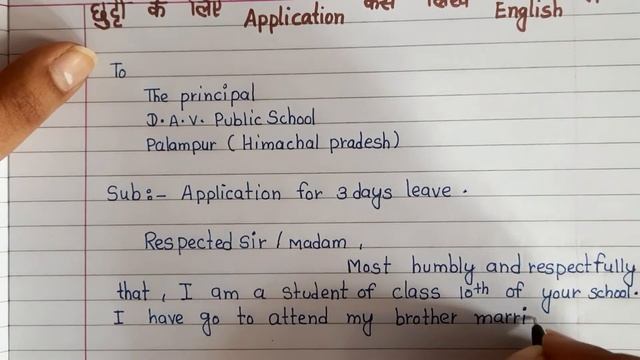 छुट्टी के लिए Application कैसे लिखें English में
To
The principal
D.A.V. Public School
Palampur (Himachal pradesh)
Sub:- Application for 3 days leave.
Respected Sir / Madam,
Most humbly and respectfully
that, I am a student of class 10th of your school.
I have go to attend my brother marri